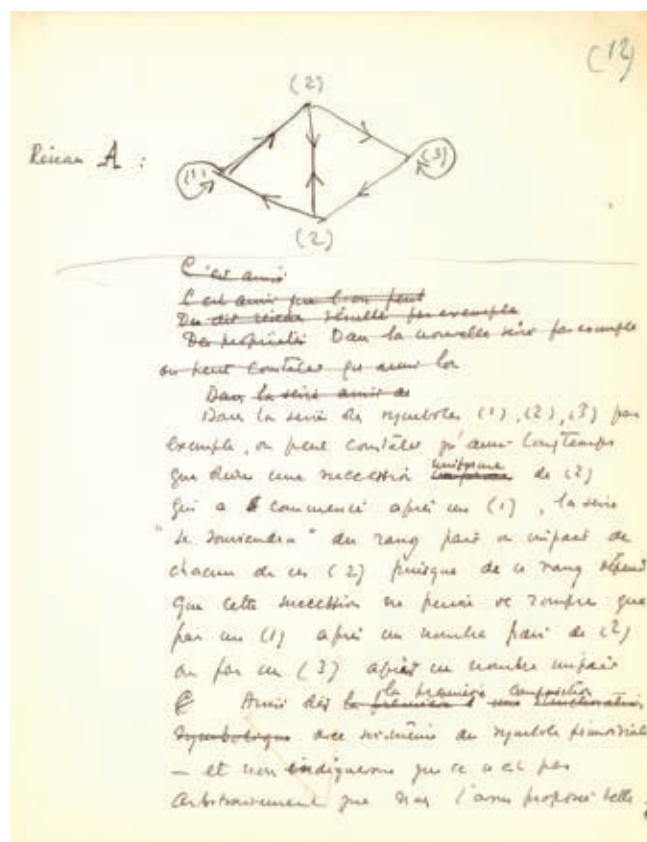 (12)
(2)
Réseau A :
(1)
(3)
(2)
C'est ainsi
C'est ainsi que l'on peut
Du dit réseau résulte par exemple
Des propriétés Dans la nouvelle série par exemple
on peut constater qu'aussi lon
Dans la série ainsi
Dans la série des symboles (1), (2), (3) par
exemple, on peut constater qu'aussi longtemps
que dure une succession uniforme de (2)
qui a commencé après un (1), la série
"se souviendra" du rang pair ou impair de
chacun de ces (2) puisque de ce rang dépend
que cette succession ne puisse se rompre que
par un (1) après un nombre pair de (2)
ou par un (3) après un nombre impair
Ainsi dès la première composition
symbolique avec soi-même du symbole primordial
— et nous indiquerons que ce n'est pas
arbitrairement que nous l'avons proposée telle